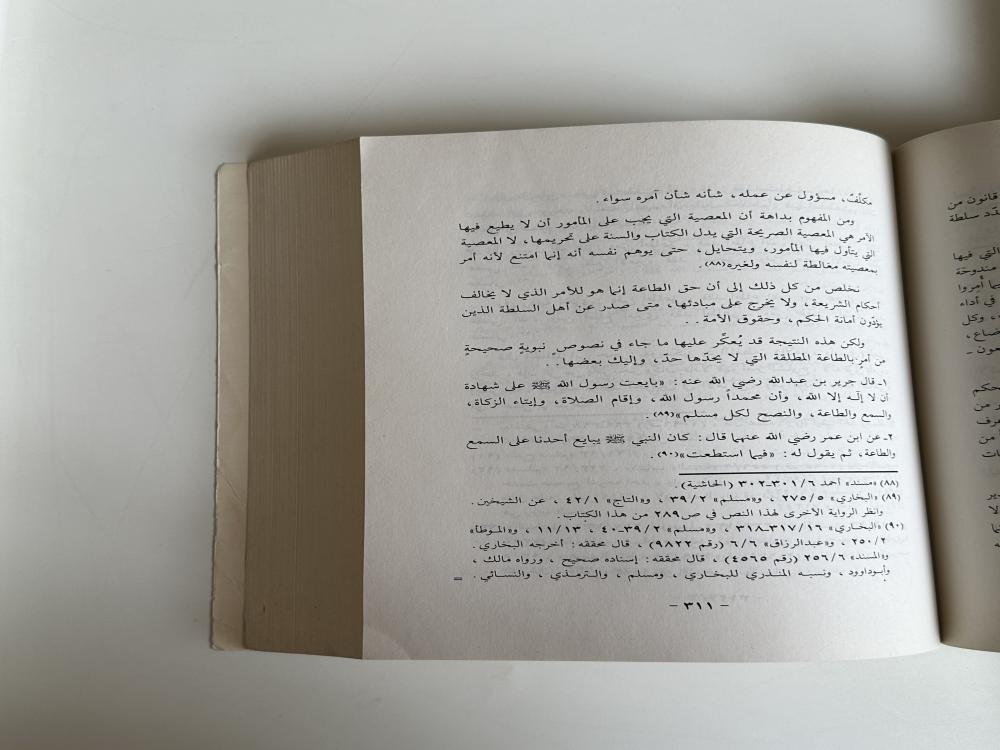 مكلَّفٌ، مسؤول عن عمله، شأنه شأن آمره سواء.
ومن المفهوم بداهة أن المعصية التي يجب على المأمور أن لا يطيع فيها
الآمر هي المعصية الصريحة التي يدل الكتاب والسنة على تحريمها، لا المعصية
التي يتأول فيها المأمور، ويتحايل، حتى يوهم نفسه أنه إنما امتنع لأنه أمر
بمعصيته مغالطة لنفسه ولغيره(٨٨).
نخلص من كل ذلك إلى أن حق الطاعة إنما هو للأمر الذي لا يخالف
أحكام الشريعة، ولا يخرج على مبادئها، متى صدر عن أهل السلطة الذين
يؤدّون أمانة الحكم، وحقوق الأمة..
ولكن هذه النتيجة قد يُعكِّر عليها ما جاء في نصوصٍ نبويةٍ صحيحةٍ
من أمرٍ بالطاعة المطلقة التي لا يحدّها حدّ، وإليك بعضها..
١ـ قال جرير بن عبدالله رضي الله عنه: «بايعت رسول الله ﷺ على شهادة
أن لا إلـه إلا الله، وأن محمداً رسول الله، وإقام الصلاة، وإيتاء الزكاة،
والسمع والطاعة، والنصح لكل مسلم»(٨٩).
٢ـ عن ابن عمر رضي الله عنهما قال: كان النبي ﷺ يبايع أحدنا على السمع
والطاعة، ثم يقول له: «فيما استطعت»(٩٠).
(٨٨) «مسند» أحمد ٣٠١/٦ـ٣٠٢ (الحاشية).
(٨٩) «البخاري» ٢٧٥/٥، و«مسلم» ٣٩/٢، و«التاج» ٤٢/١، عن الشيخين.
وانظر الرواية الأخرى لهذا النص في ص٢٨٩ من هذا الكتاب.
(٩٠) «البخاري» ٣١٧/١٦ـ٣١٨، و«مسلم» ٣٩/٢ـ٤٠، ١١/١٣، و«الموطأ»
٢٥٠/٢، و«عبدالرزاق» ٦/٦ (رقم ٩٨٢٢)، قال محققه: أخرجه البخاري.
و«المسند» ٢٥٦/٦ (رقم ٤٥٦٥)، قال محققه: إسناده صحيح، ورواه مالك،
وأبوداوود، ونسبه المنذري للبخاري، ومسلم، والترمذي، والنسائي. =
– ٣١١ –
قانون من
سلطة
التي فيها
مندوحة
أمروا
في أداء
، وكل